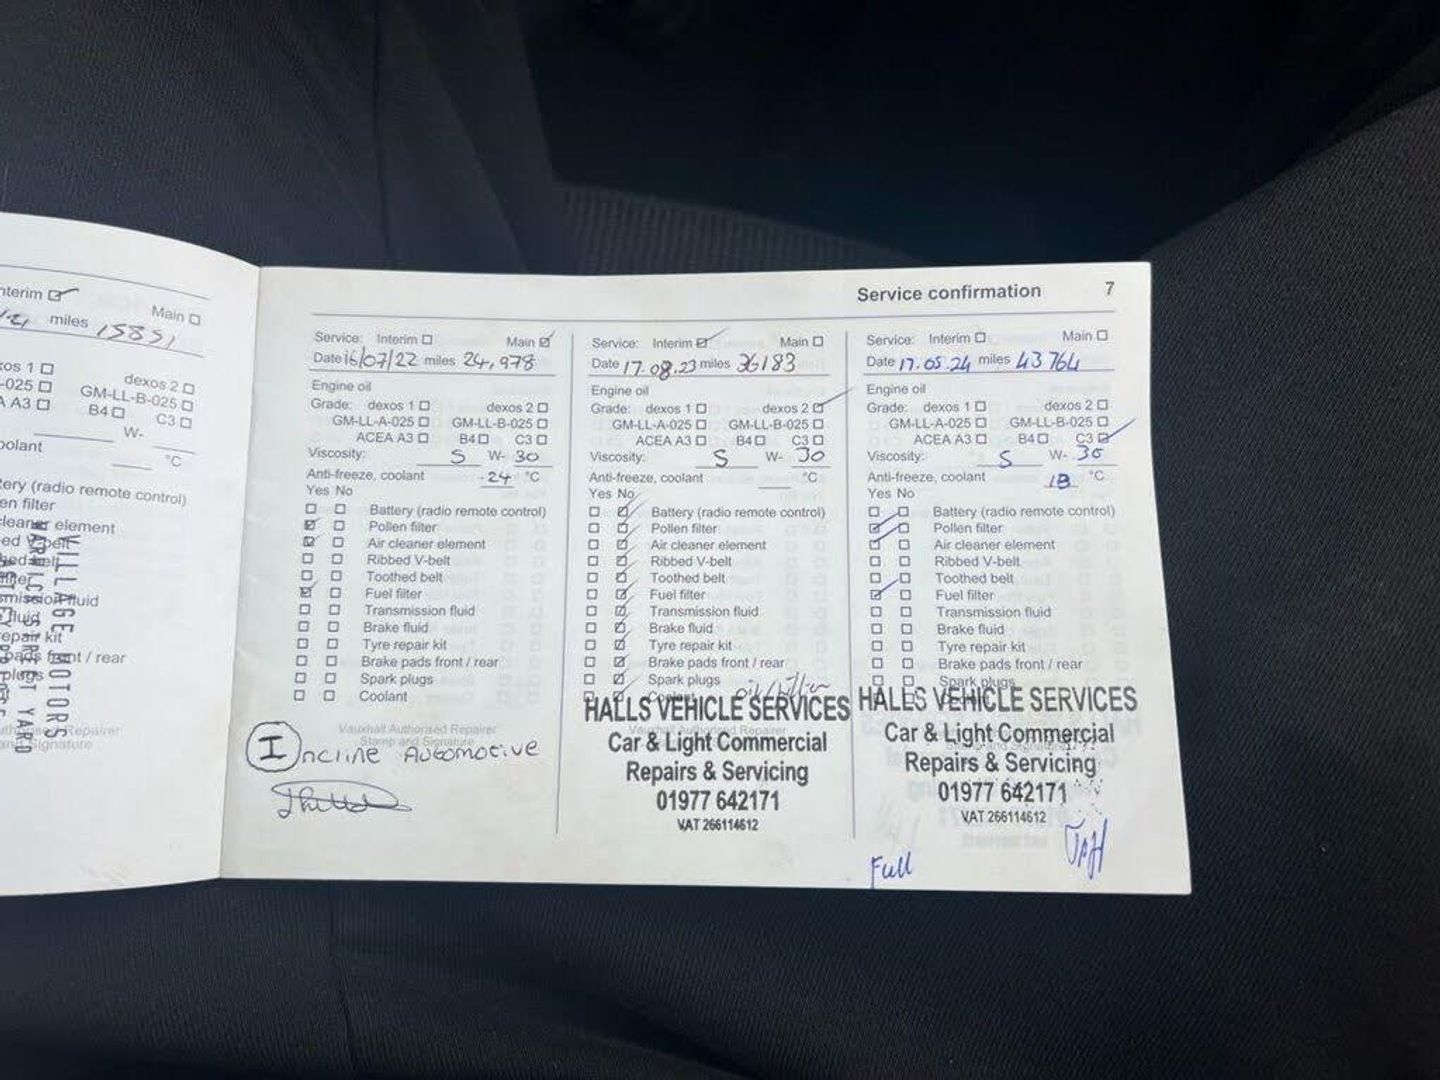 Service confirmation 7
nterim Main
miles 15851
dexos 2
GM-LL-B-025
A A3 B4 C3
W-
°C
(radio remote control)
en filter
element
fluid
repair kit
pads front / rear
VILLAGE MOTORS
Service: Interim Main
Date 16/07/22 miles 24,978
Engine oil
Grade: dexos 1 dexos 2
GM-LL-A-025 GM-LL-B-025
ACEA A3 B4 C3
Viscosity: 5 W- 30
Anti-freeze, coolant -24 °C
Yes No
Battery (radio remote control)
Pollen filter
Air cleaner element
Ribbed V-belt
Toothed belt
Fuel filter
Transmission fluid
Brake fluid
Tyre repair kit
Brake pads front / rear
Spark plugs
Coolant
Vauxhall Authorised Repairer
Stamp and Signature
Incline Automotive
Service: Interim Main
Date 17.08.23 miles 36183
Engine oil
Grade: dexos 1 dexos 2
GM-LL-A-025 GM-LL-B-025
ACEA A3 B4 C3
Viscosity: 5 W- 30
Anti-freeze, coolant °C
Yes No
Battery (radio remote control)
Pollen filter
Air cleaner element
Ribbed V-belt
Toothed belt
Fuel filter
Transmission fluid
Brake fluid
Tyre repair kit
Brake pads front / rear
Spark plugs
Coolant
HALLS VEHICLE SERVICES
Car & Light Commercial
Repairs & Servicing
01977 642171
VAT 266114612
Service: Interim Main
Date 17.05.24 miles 43764
Engine oil
Grade: dexos 1 dexos 2
GM-LL-A-025 GM-LL-B-025
ACEA A3 B4 C3
Viscosity: 5 W- 30
Anti-freeze, coolant 18 °C
Yes No
Battery (radio remote control)
Pollen filter
Air cleaner element
Ribbed V-belt
Toothed belt
Fuel filter
Transmission fluid
Brake fluid
Tyre repair kit
Brake pads front / rear
Spark plugs
HALLS VEHICLE SERVICES
Car & Light Commercial
Repairs & Servicing
01977 642171
VAT 266114612
Full